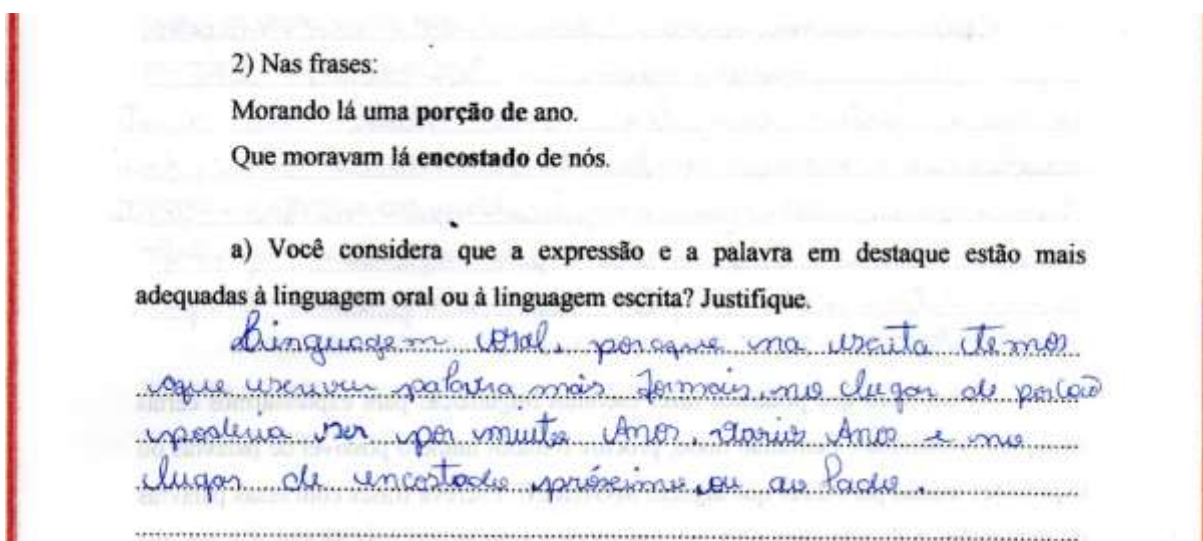 2) Nas frases:
Morando lá uma porção de ano.
Que moravam lá encostado de nós.
a) Você considera que a expressão e a palavra em destaque estão mais
adequadas à linguagem oral ou à linguagem escrita? Justifique.
Linguagem oral, porque na escrita temos
que escrever palavra mais formais, no lugar de porção
poderia ser por muito Anos, varios Anos e no
lugar de encostado próximo, ou ao lado.